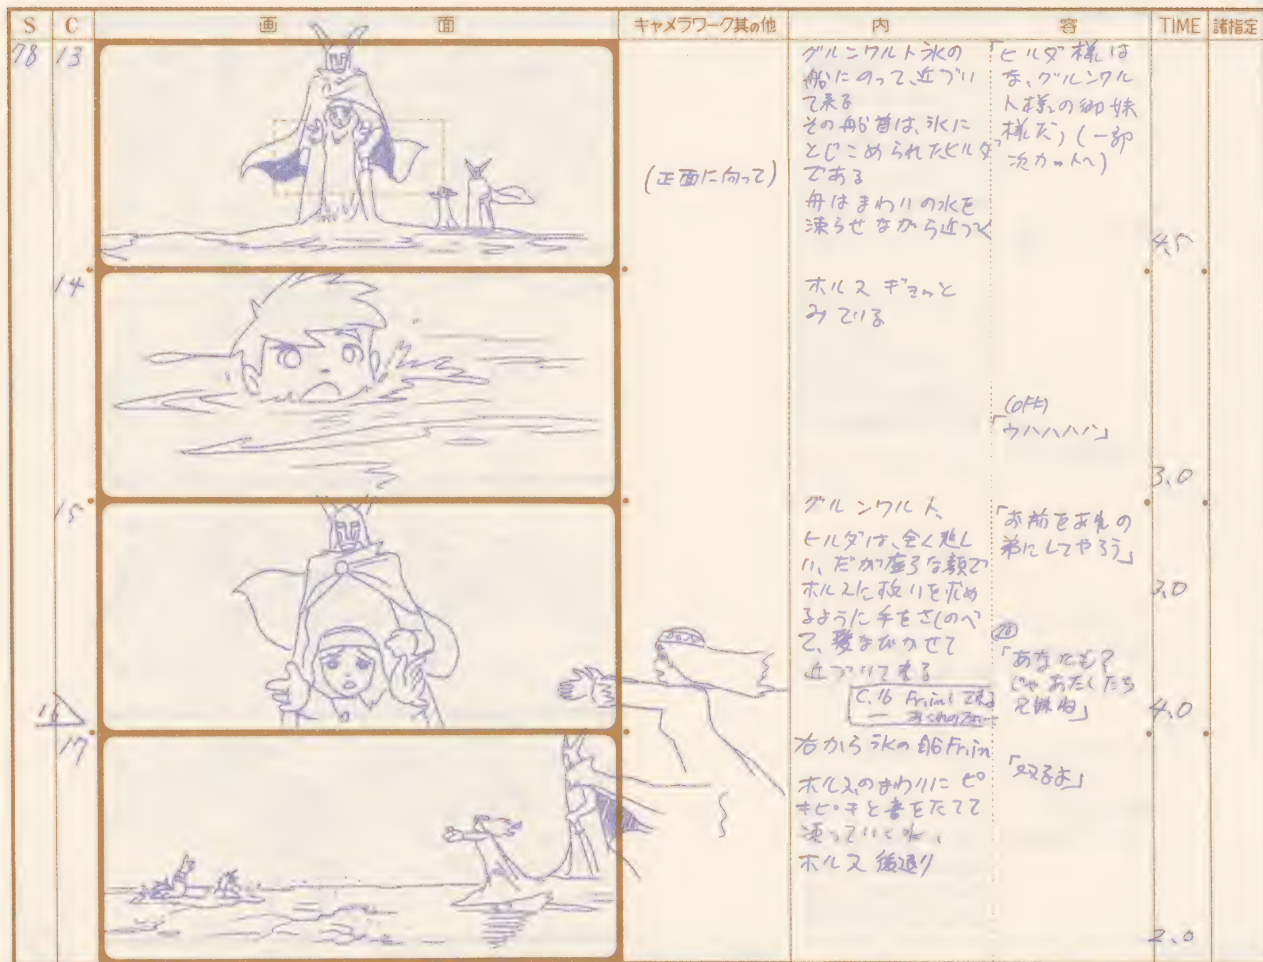 S C 画 面 キャメラワーク其の他 内 容 TIME 諸指定
78 13
(正面に向って)
グルンワルト氷の
船にのって、近づい
て来る
その船首は、氷に
とじこめられたヒルダ
である
舟はまわりの水を
凍らせながら近づく
「ヒルダ様は
な、グルンワル
ト様の御妹
様だ」(一部
次カットへ)
4.5
14
ホルス ギョッと
みている
(OFF)
「ウハハハハ」
3.0
15
グルンワルト、
ヒルダは、全く悲し
い、だが な顔で
ホルスに救いを求め
るように手をさしのべ
て、髪なびかせて
近づいて来る
「お前をあれの
弟にしてやろう」
3.0
16
C.16 Fr.inして来る
「あなたも?
じゃあたしたち
兄妹ね」
4.0
17
右から氷の船Fr.in
ホルスのまわりにピ
キピキと音をたてて
凍っていく水、
ホルス後退り
2.0